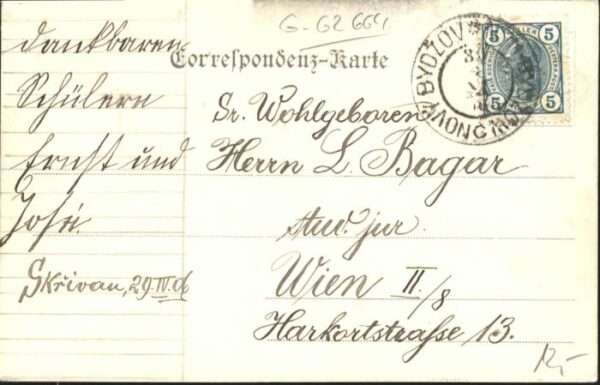 G-G2 664
Correspondenz-Karte
5 5
5 5
BYDŽOV
NOVÝ
dankbaren
Schülern
Ernst und
José
Skřivan, 29 IV. 06
Sr. Wohlgeboren
Herrn L. Bagar
stud. jur.
Wien II./8
Harkortstraße 13.